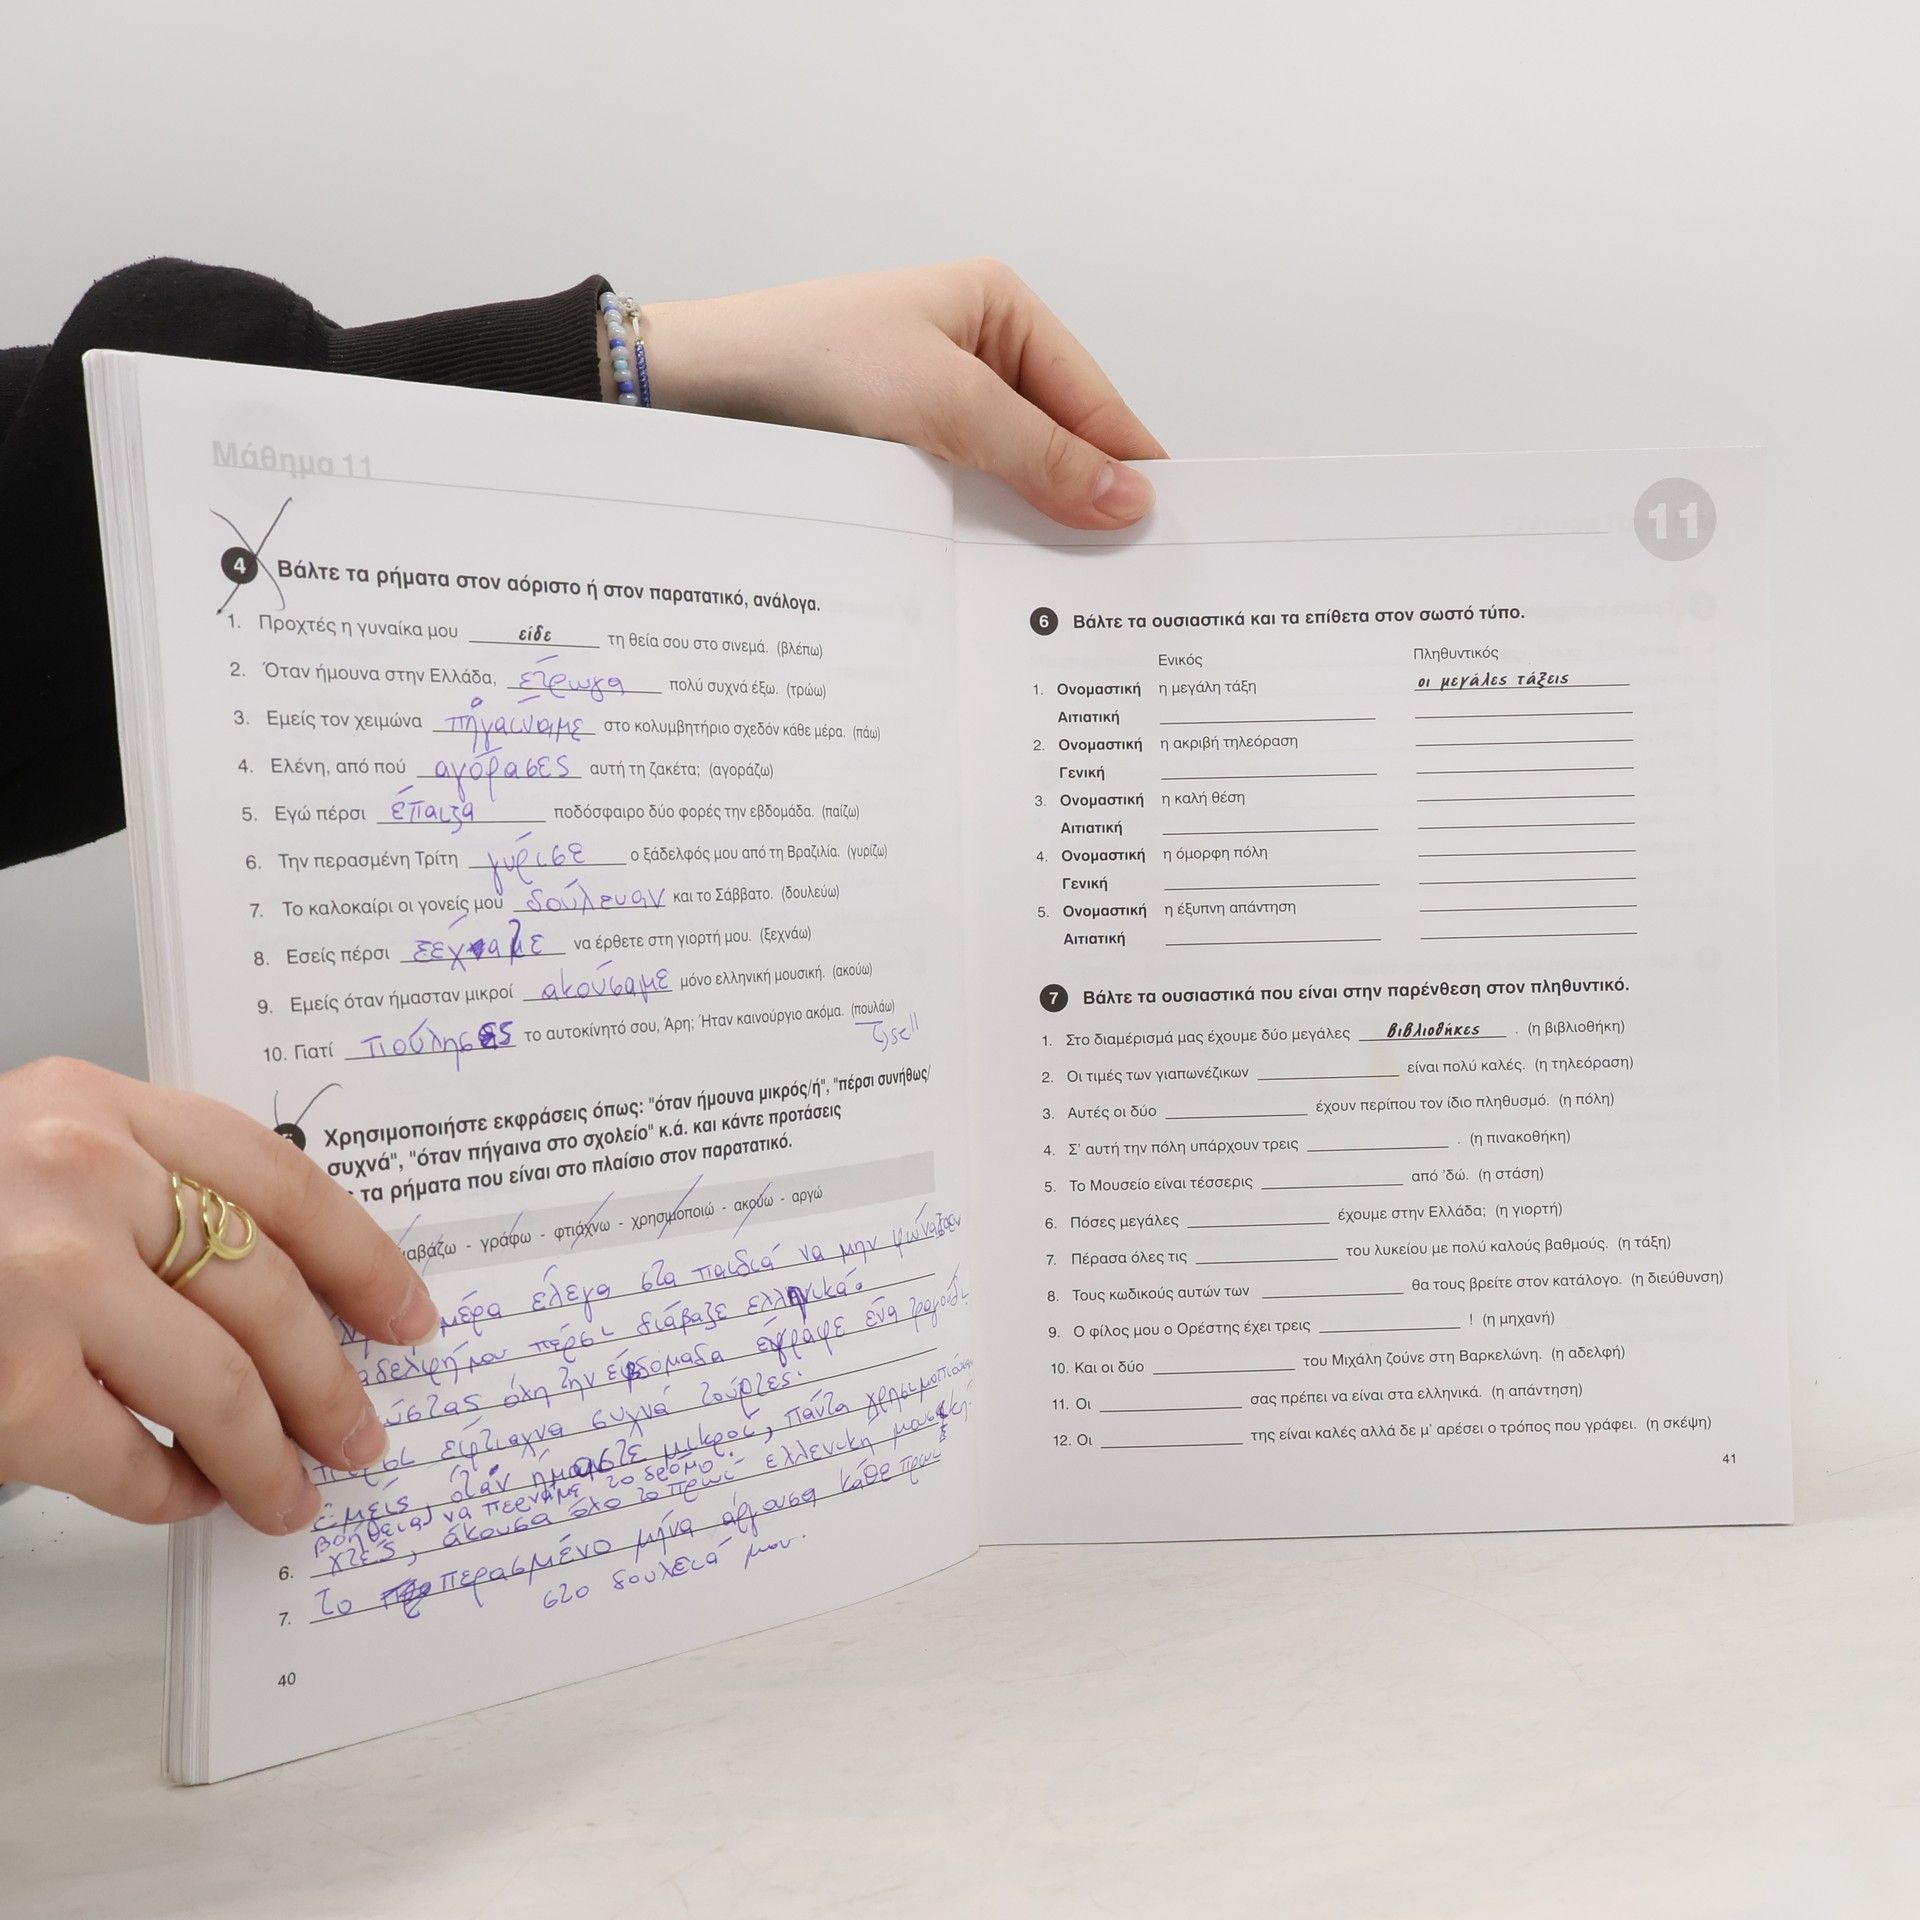 Μάθημα 11
4 Βάλτε τα ρήματα στον αόριστο ή στον παρατατικό, ανάλογα.
1. Προχτές η γυναίκα μου είδε τη θεία σου στο σινεμά. (βλέπω)
2. Όταν ήμουνα στην Ελλάδα, έτρωγα πολύ συχνά έξω. (τρώω)
3. Εμείς τον χειμώνα πήγαιναμε στο κολυμβητήριο σχεδόν κάθε μέρα. (πάω)
4. Ελένη, από πού αγόρασες αυτή τη ζακέτα; (αγοράζω)
5. Εγώ πέρσι έπαιζα ποδόσφαιρο δύο φορές την εβδομάδα. (παίζω)
6. Την περασμένη Τρίτη γύρισε ο ξάδελφός μου από τη Βραζιλία. (γυρίζω)
7. Το καλοκαίρι οι γονείς μου δούλευαν και το Σάββατο. (δουλεύω)
8. Εσείς πέρσι να έρθετε στη γιορτή μου. (ξεχνάω)
9. Εμείς όταν ήμασταν μικροί ακούσαμε μόνο ελληνική μουσική. (ακούω)
10. Γιατί πούλησες το αυτοκίνητό σου, Άρη; Ήταν καινούργιο ακόμα. (πουλάω)
sell
Χρησιμοποιήστε εκφράσεις όπως: "όταν ήμουνα μικρός/ή", "πέρσι συνήθως/
συχνά", "όταν πήγαινα στο σχολείο" κ.ά. και κάντε προτάσεις
τα ρήματα που είναι στο πλαίσιο στον παρατατικό.
αβάζω - γράφω - φτιάχνω - χρησιμοποιώ - ακούω - αργώ
μέρα έλεγα στα παιδιά να μην
μου πέρσι διάβαζε ελληνικά.
όχη την εβδομάδα έγραφε ένα
είφτιαχνα συχνά τούρτες.
εμείς, όταν ήμαστε μικροί, πάντα
βοήθεια να περνάμε το δρόμο.
6. χτες, άκουσα όλο το πρωί ελλενικη
7. το περασμένο μήνα άργουσα κάθε πρωί
στο δουλειά μου.
40
11
6 Βάλτε τα ουσιαστικά και τα επίθετα στον σωστό τύπο.
Ενικός Πληθυντικός
1. Ονομαστική η μεγάλη τάξη οι μεγάλες τάξεις
Αιτιατική
2. Ονομαστική η ακριβή τηλεόραση
Γενική
3. Ονομαστική η καλή θέση
Αιτιατική
4. Ονομαστική η όμορφη πόλη
Γενική
5. Ονομαστική η έξυπνη απάντηση
Αιτιατική
7 Βάλτε τα ουσιαστικά που είναι στην παρένθεση στον πληθυντικό.
1. Στο διαμέρισμά μας έχουμε δύο μεγάλες βιβλιοθήκες . (η βιβλιοθήκη)
2. Οι τιμές των γιαπωνέζικων είναι πολύ καλές. (η τηλεόραση)
3. Αυτές οι δύο έχουν περίπου τον ίδιο πληθυσμό. (η πόλη)
4. Σ' αυτή την πόλη υπάρχουν τρεις . (η πινακοθήκη)
5. Το Μουσείο είναι τέσσερις από 'δώ. (η στάση)
6. Πόσες μεγάλες έχουμε στην Ελλάδα; (η γιορτή)
7. Πέρασα όλες τις του λυκείου με πολύ καλούς βαθμούς. (η τάξη)
8. Τους κωδικούς αυτών των θα τους βρείτε στον κατάλογο. (η διεύθυνση)
9. Ο φίλος μου ο Ορέστης έχει τρεις ! (η μηχανή)
10. Και οι δύο του Μιχάλη ζούνε στη Βαρκελώνη. (η αδελφή)
11. Οι σας πρέπει να είναι στα ελληνικά. (η απάντηση)
12. Οι της είναι καλές αλλά δε μ' αρέσει ο τρόπος που γράφει. (η σκέψη)
41